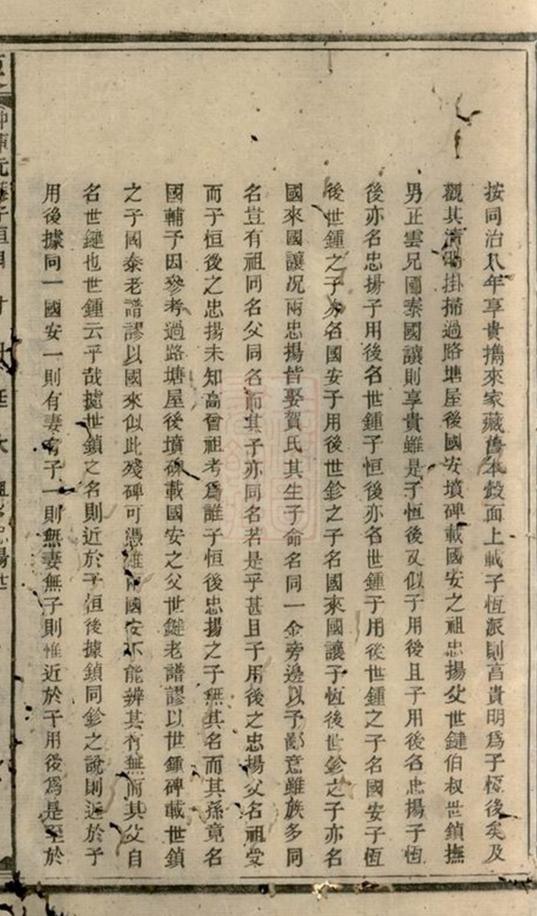 按同治八年享貴攜來家藏舊本殼面上載子恆派則高貴明爲子恆後矣及
觀其清明掛掃過路塘屋後國安墳碑載國安之祖忠揚父世鏈伯叔世鎖撫
男正雲兄國泰國讓則享貴雖是子恆後又似子用後且子用後名忠揚子恆
後亦名忠揚子用後名世鍾子恒後亦名世鍾子用後世鍾之子名國安子恆
後世鍾之子亦名國安子用後世鉁之子名國來國讓子恆後世鉁之子亦名
國來國讓况兩忠揚皆娶賀氏其生子命名同一金旁邊以予鄙意雖族多同
名豈有祖同名父同名而其子亦同名若是乎甚且子用後之忠揚父名祖受
而子恒後之忠揚未知高曾祖考爲誰子恒後忠揚之子無其名而其孫竟名
國輔予因參考過路塘屋後墳碑載國安之父世鏈老譜謬以世鍾碑載世鎖
之子國泰老譜謬以國來似此殘碑可憑雖國安不能辨其有無而其父自
名世鏈也世鍾云乎哉據世鎖之名則近於子恒後據鎖同鉁之說則近於子
用後據同一國安一則有妻有子一則無妻無子則惟近於子用後爲是至於